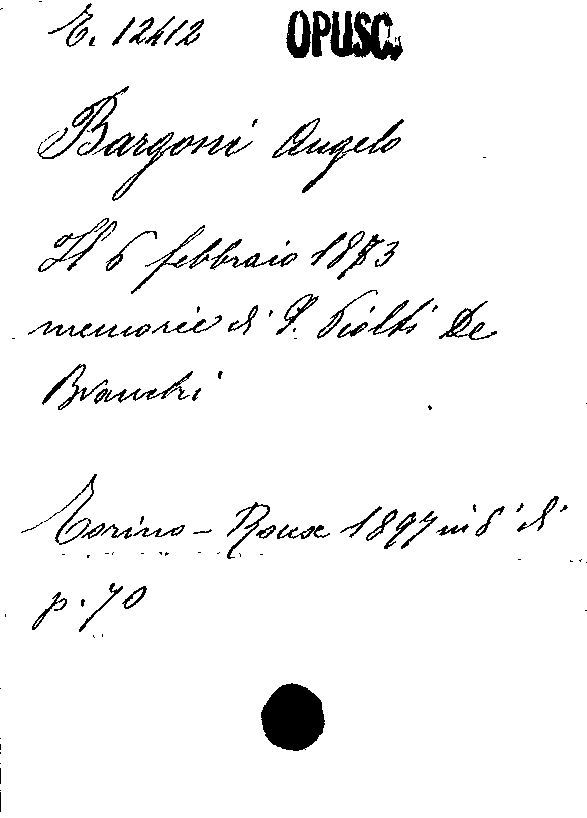 E. 12412 OPUSC.
Bargoni Angelo
Il 6 febbraio 1853
memorie di G. Piolti De
Bianchi
Torino - Roux 1897 in 8° di
p. 70